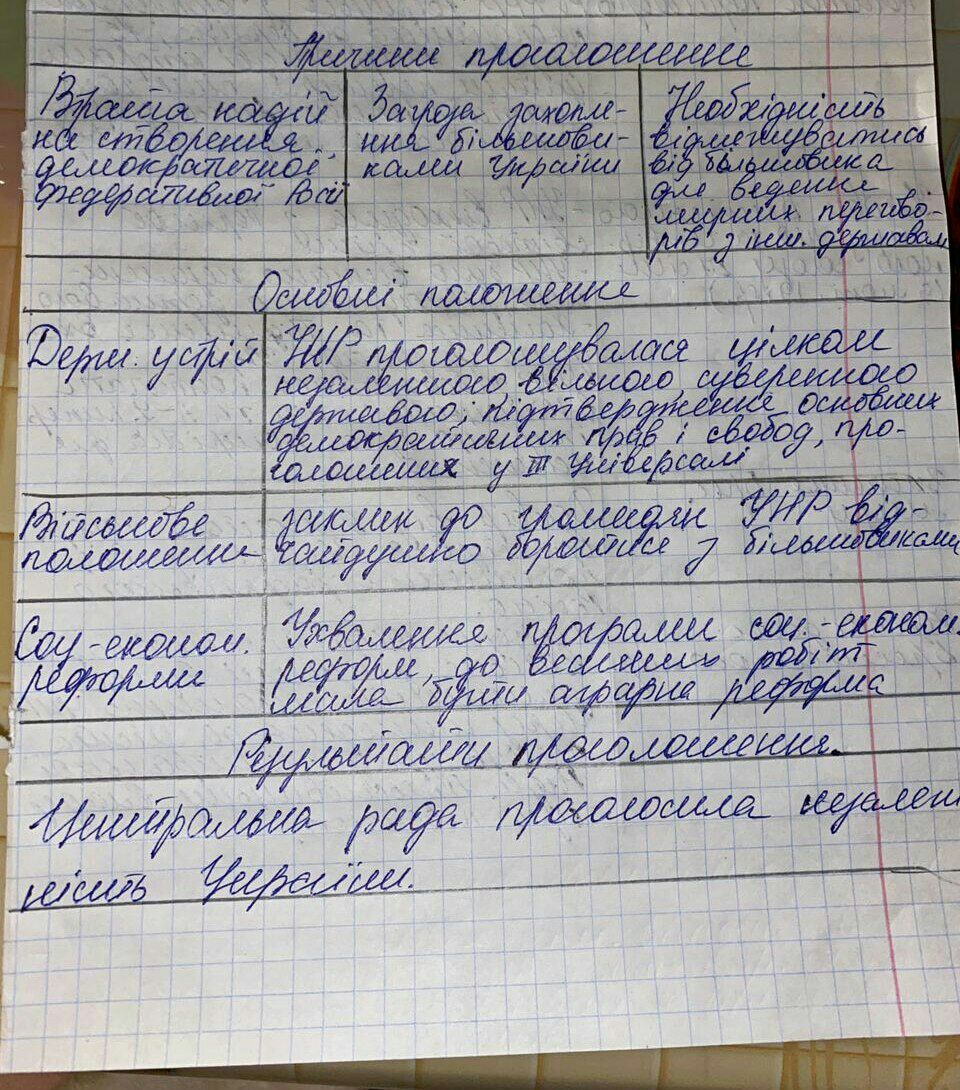 Причини проголошення
Втрата надій
на створення
демократичної
федеративної Росії
Загроза захопле-
ння більшови-
ками України
Необхідність
відмежуватись
від більшовика
для ведення
мирних перегово-
рів з інш. державам
Основні положення
Держ. устрій
УНР проголошувалася цілком
незалежною вільною суверенною
державою, підтвердження основних
демократичних прав і свобод, про-
голошених у III Універсалі
Військове
положення
заклик до громадян УНР від-
чайдушно боротися з більшовиками
Соц-економ.
реформи
Ухвалення програми соц.-економ.
реформ, до весняних робіт
мала бути аграрна реформа
Результати проголошення.
Центральна рада проголосила незалеж
ність України.